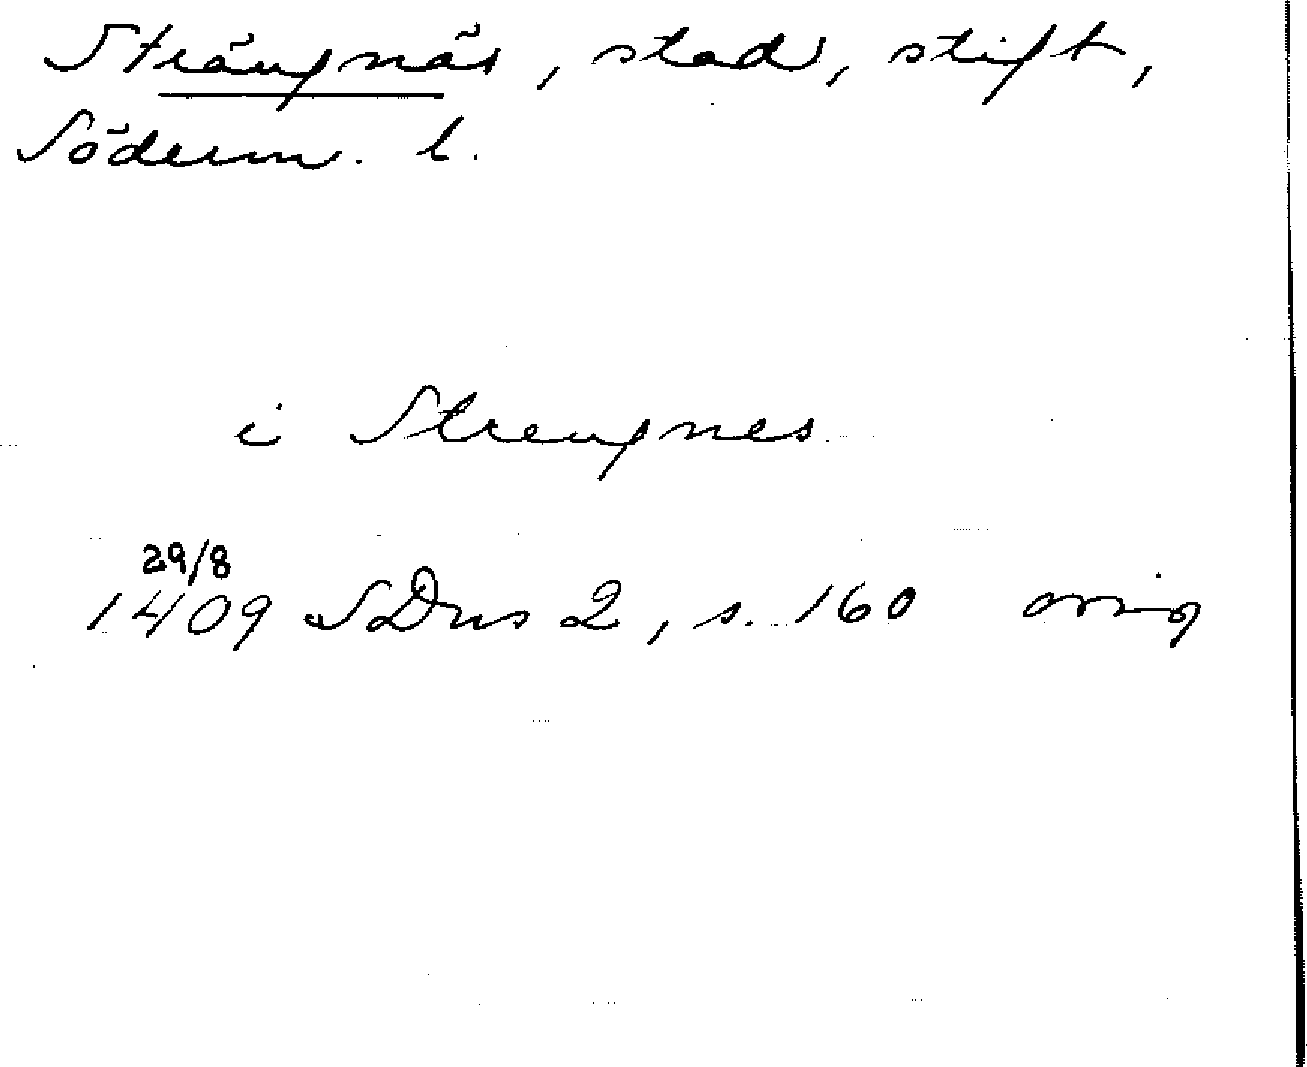 Strängnäs, stad, stift,
Söderm. l.
i Strengnes
29/8
1409 SDns 2, s. 160 orig